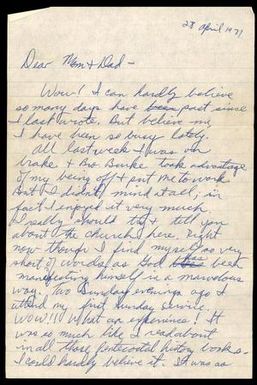 28 April 1971
Dear Mom & Dad –
Wow! I can hardly believe
so many days have been past since
I last wrote. But believe me,
I have been so busy lately.
All last week I was on
brake & Bro Burke took advantage
of my being off & put me to work
But I didn't mind at all, in
fact I enjoyed it very much.
I sadly should try & tell you
about the church here. Right
now though I find myself so very
short of words as God has been
manifesting himself in a marvelous
way. Two Sunday evenings ago I
attend my first Sunday Service.
WOW!! What an experience! It
was so much like I read about
in all those pentecostal history books
I could hardly believe it. I was so